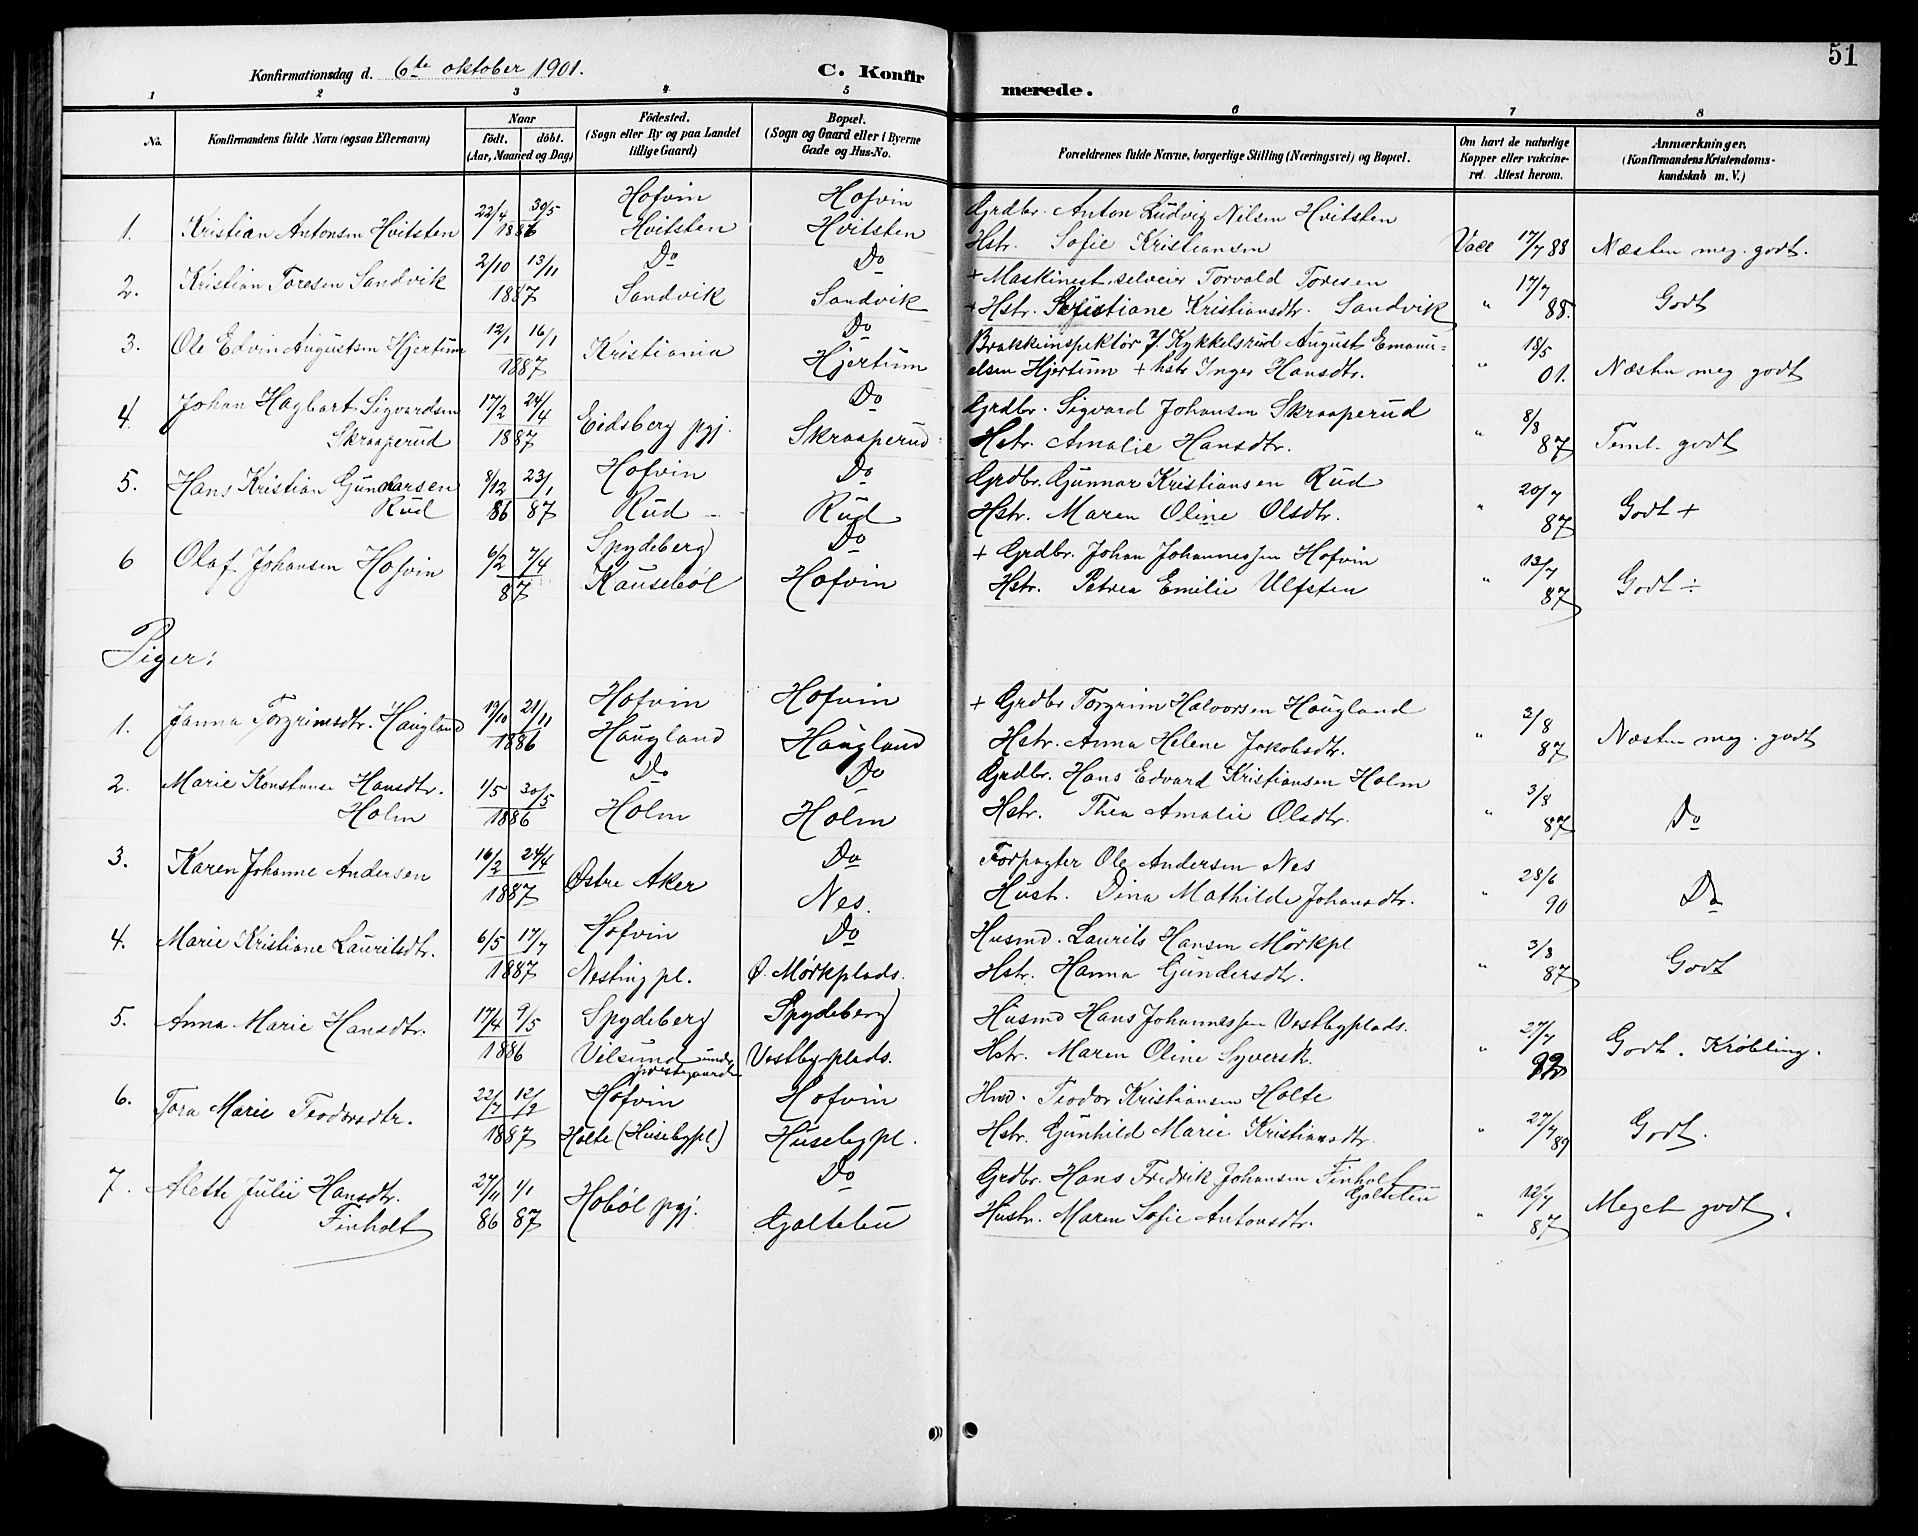 51
Konfirmationsdag d. 6te oktober 1901. C. Konfirmerede.
1 2 3 4 5 6 7 8
No. Konfirmandens fulde Navn (ogsaa Efternavn) Naar født. døbt. (Aar, Maaned og Dag) Fødested. (Sogn eller By og paa Landet tillige Gaard) Bopæl. (Sogn og Gaard eller i Byerne Gade og Hus-No. Forældrenes fulde Navne, borgerlige Stilling (Næringsvei) og Bopæl. Om havt de naturlige Kopper eller vakcineret. Attest herom. Anmærkninger. (Konfirmandens Kristendomskundskab m. V.)
Hofvin Hofvin Grdbr. Anton Ludvig Nilsen Hvitsten
1. Kristian Antonsen Hvitsten 22/4 30/5 1886 Hvitsten Hvitsten Hstr. Sofie Kristiansen Vacc 17/7 88 Næsten meg. godt.
2/10 13/11 Do Do + Maskinest. selveier Torvald Toresen
2. Kristian Toresen Sandvik 1887 Sandvik Sandvik + Hstr. Kristiansdtr. Sandvik " 17/7 88. Godt
3. Ole Edvin Augustsen Hjertum 12/1 16/1 Kristiania Do Brakkeinspektør Kykkelsrud August Emanu-
1887 Hjertum elsen Hjertum + hstr Inger Hansdtr. " 18/5 01. Næsten meg godt
4. Johan Hagbart Sigvardsen 17/2 24/4 Eidsberg pgj. Do Grdbr. Sigvard Johansen Skraaperud
Skraaperud 1887 Skraaperud Hstr. Amalie Hansdtr. " 8/8 87 Teml. godt
5. Hans Kristian Gunnarsen 8/12 23/1 Hofvin Do Grdbr. Gunnar Kristiansen Rud
Rud 86 87 Rud Rud Hstr. Maren Oline Olsdtr. " 20/7 87 Godt +
6 Olaf Johansen Hofvin 6/2 7/4 Spydeberg Do + Grdbr. Johan Johannessen Hofvin
87 Kausebøl Hofvin Hstr. Petrea Emilie Ulfsten " 12/7 87 Godt ÷
Piger:
Hofvin Hofvin + Grdbr Torgrim Halvorsen Haugland
1. Janna Torgrimsdtr. Haugland 19/10 21/11 1886 Haugland Haugland Hstr. Anna Helene Jakobsdtr. " 3/8 87 Næsten meg. godt
2. Marie Konstanse Hansdtr. 1/5 30/5 Do Do Grdbr. Hans Edvard Kristiansen Holm
Holm 1886 Holm Holm Hstr. Thea Amalie Olsdtr. " 3/8 87 Do
3. Karen Johanne Andersen 16/2 24/4 Østre Aker Do Forpagter Ole Andersen Nes
1887 Nes. Hustr. Dina Mathilde Johansdtr. " 28/6 90 Do
4. Marie Kristiane Lauritsdtr. 6/5 17/7 Hofvin Do Husmd. Laurits Hansen Mörkpl
1887 Nesting pl. Ø. Mörkplads. Hstr. Hanna Gundersdtr. " 3/8 87 Godt
5. Anna Marie Hansdtr. 17/4 9/5 Spydeberg Spydeberg Husmd Hans Johannessen Vestbyplads.
1886 Vilsund under prestegaarden Vestbyplads. Hstr. Maren Oline Syversk. " 27/7 Godt. Krøbling.
6. Tora Marie Teodorsdtr. 22/7 12/9 Hofvin Hofvin Hmd. Teodor Kristiansen Holte
1887 Holte (Husebypl) Husebypl. Hstr. Gunhild Marie Kristiansdtr. " 27/7 89 Godt.
7. Alette Julie Hansdtr. 27/11 1/1 Hobøl pgj. Do Grdbr. Hans Fredrik Johansen Finholt
Galteteu
Finholt 86 87 Galteteu Hustr. Maren Sofie Antonsdtr. " 12/7 87 Meget godt.